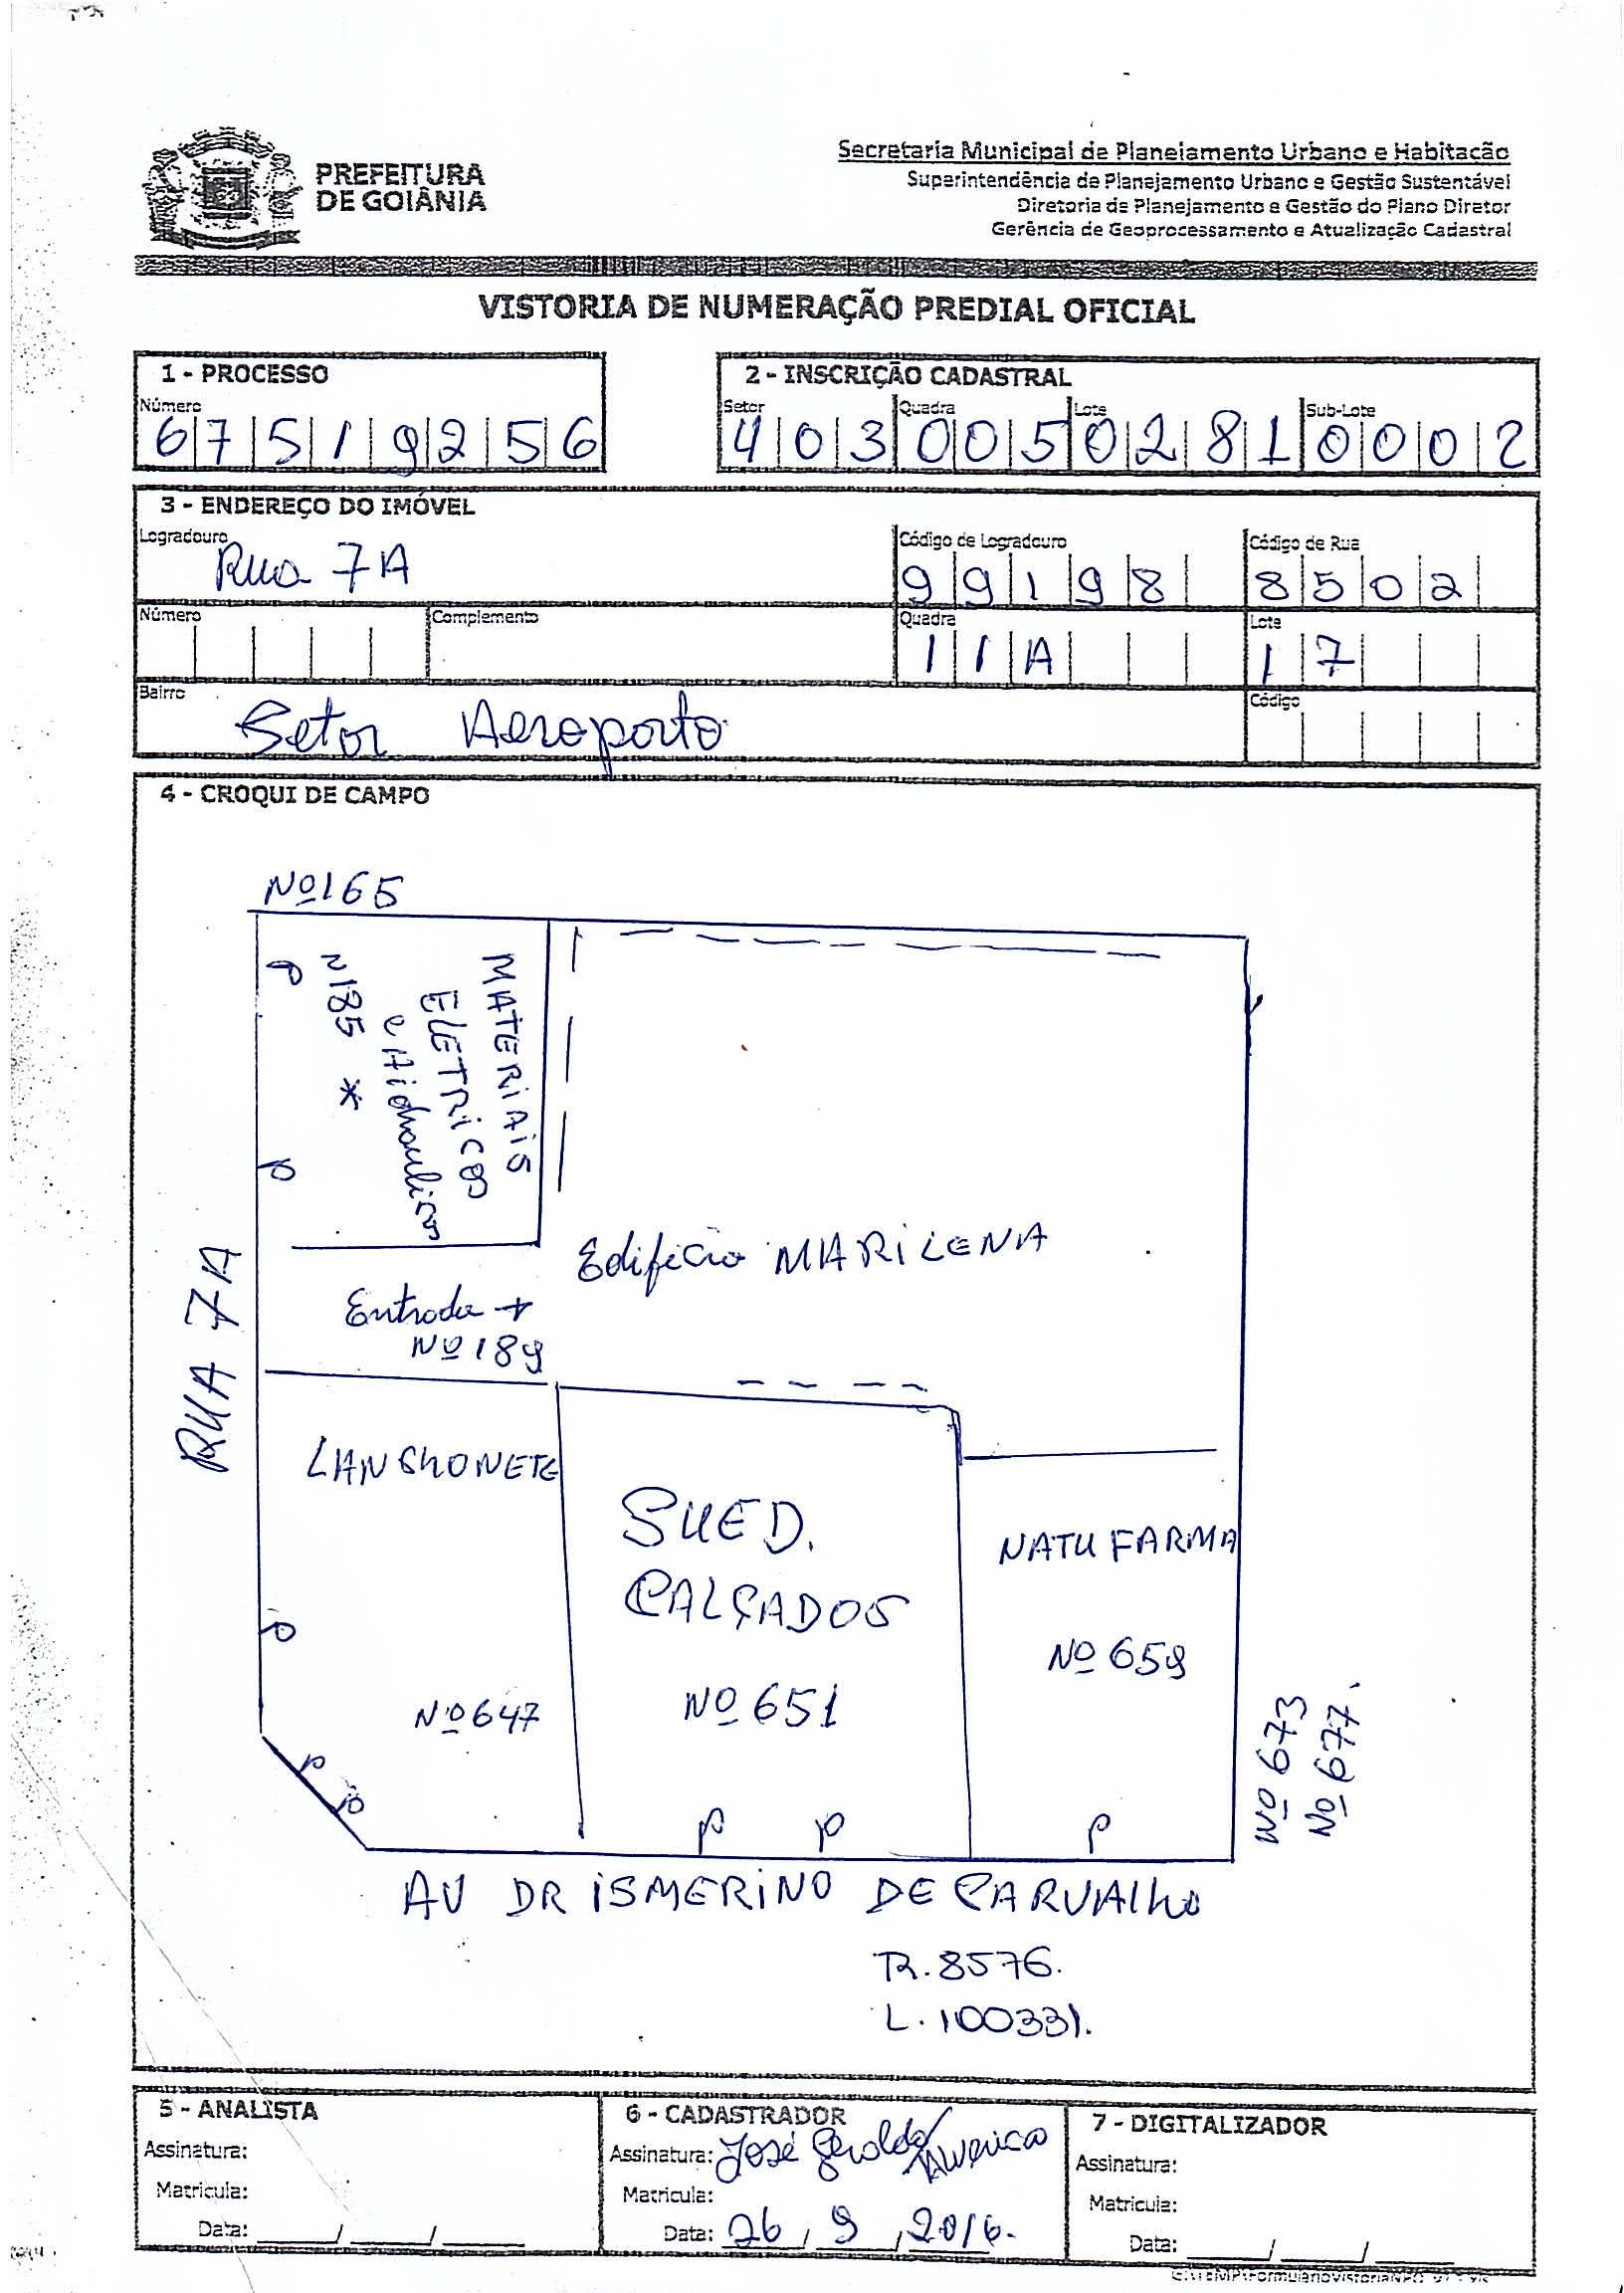 PREFEITURA
DE GOIÂNIA
Secretaria Municipal de Planejamento Urbano e Habitação
Superintendência de Planejamento Urbano e Gestão Sustentável
Diretoria de Planejamento e Gestão do Plano Diretor
Gerência de Geoprocessamento e Atualização Cadastral
VISTORIA DE NUMERAÇÃO PREDIAL OFICIAL
1 - PROCESSO
Número
6 7 5 1 9 2 5 6
2 - INSCRIÇÃO CADASTRAL
Setor Quadra Lote Sub-Lote
4 0 3 0 0 5 0 2 8 1 0 0 0 2
3 - ENDEREÇO DO IMÓVEL
Logradouro Código de Logradouro Código de Rua
Rua 7A 9 9 1 9 8 8 5 0 2
Número Complemento Quadra Lote
1 1 A 1 7
Bairro Código
Setor Aeroporto
4 - CROQUI DE CAMPO
Nº 165
P
N 185 *
MATERIAIS
ELETRICOS
e Hidraulicos
P
Edificio MARILENA
Entrada +
Nº 189
RUA 7A
LANCHONETE
Nº 647
SUED.
CALÇADOS
Nº 651
NATU FARMA
Nº 659
Nº 673
Nº 677.
P
P
P
P P P
AV DR ISMERINO DE CARVALHO
R. 8576.
L. 100331.
5 - ANALISTA
Assinatura:
Matricula:
Data: ___/___/___
6 - CADASTRADOR
Assinatura: José Geraldo Americo
Matricula:
Data: 26 / 9 / 2016.
7 - DIGITALIZADOR
Assinatura:
Matricula:
Data: ___/___/___